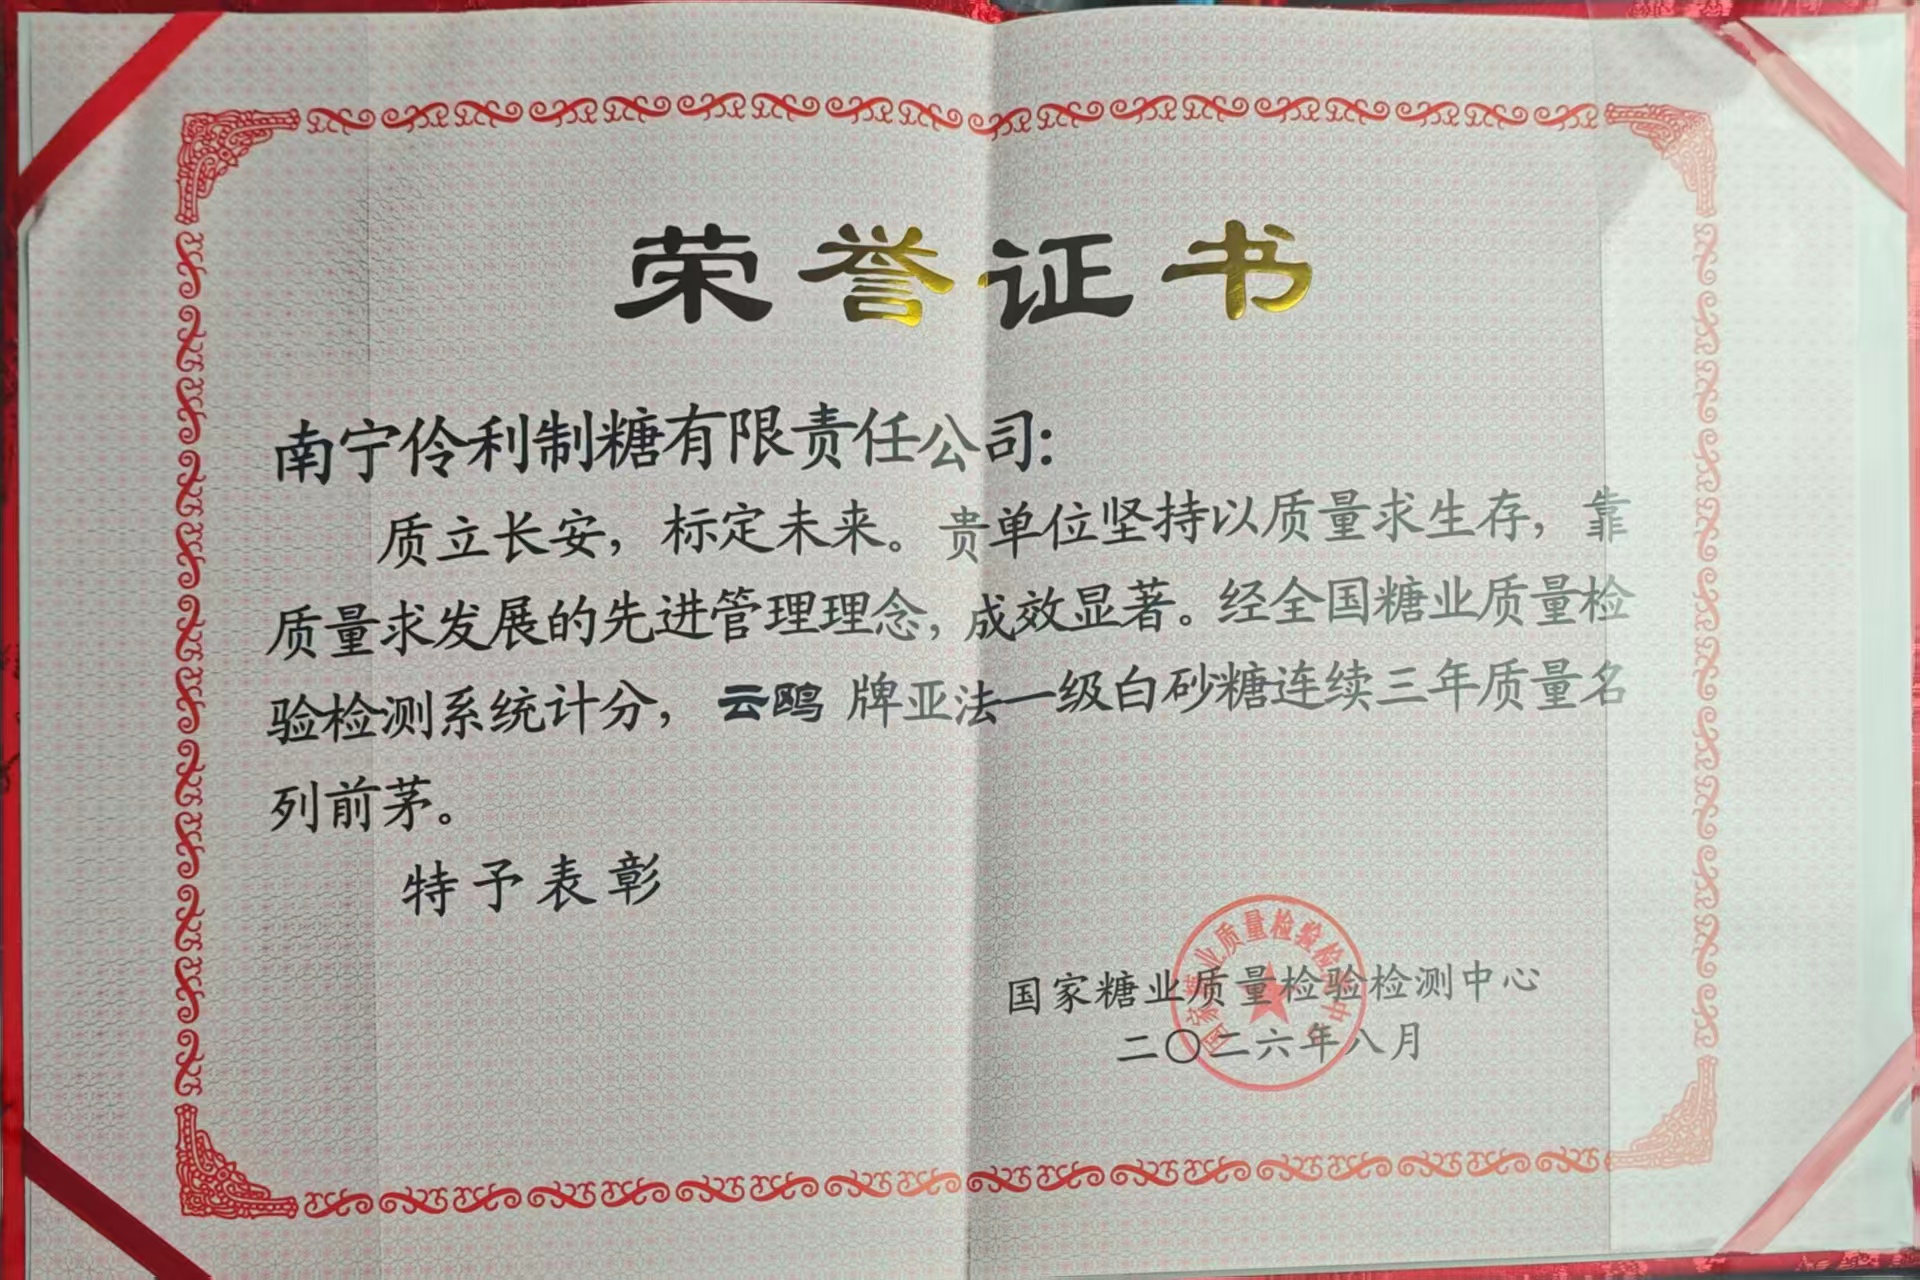 荣誉证书
南宁伶利制糖有限责任公司:
质立长安，标定未来。贵单位坚持以质量求生存，靠
质量求发展的先进管理理念，成效显著。经全国糖业质量检
验检测系统计分，云鸥 牌亚法一级白砂糖连续三年质量名
列前茅。
特予表彰
国家糖业质量检验检测中心
二〇二六年八月
国家糖业质量检验检测中心